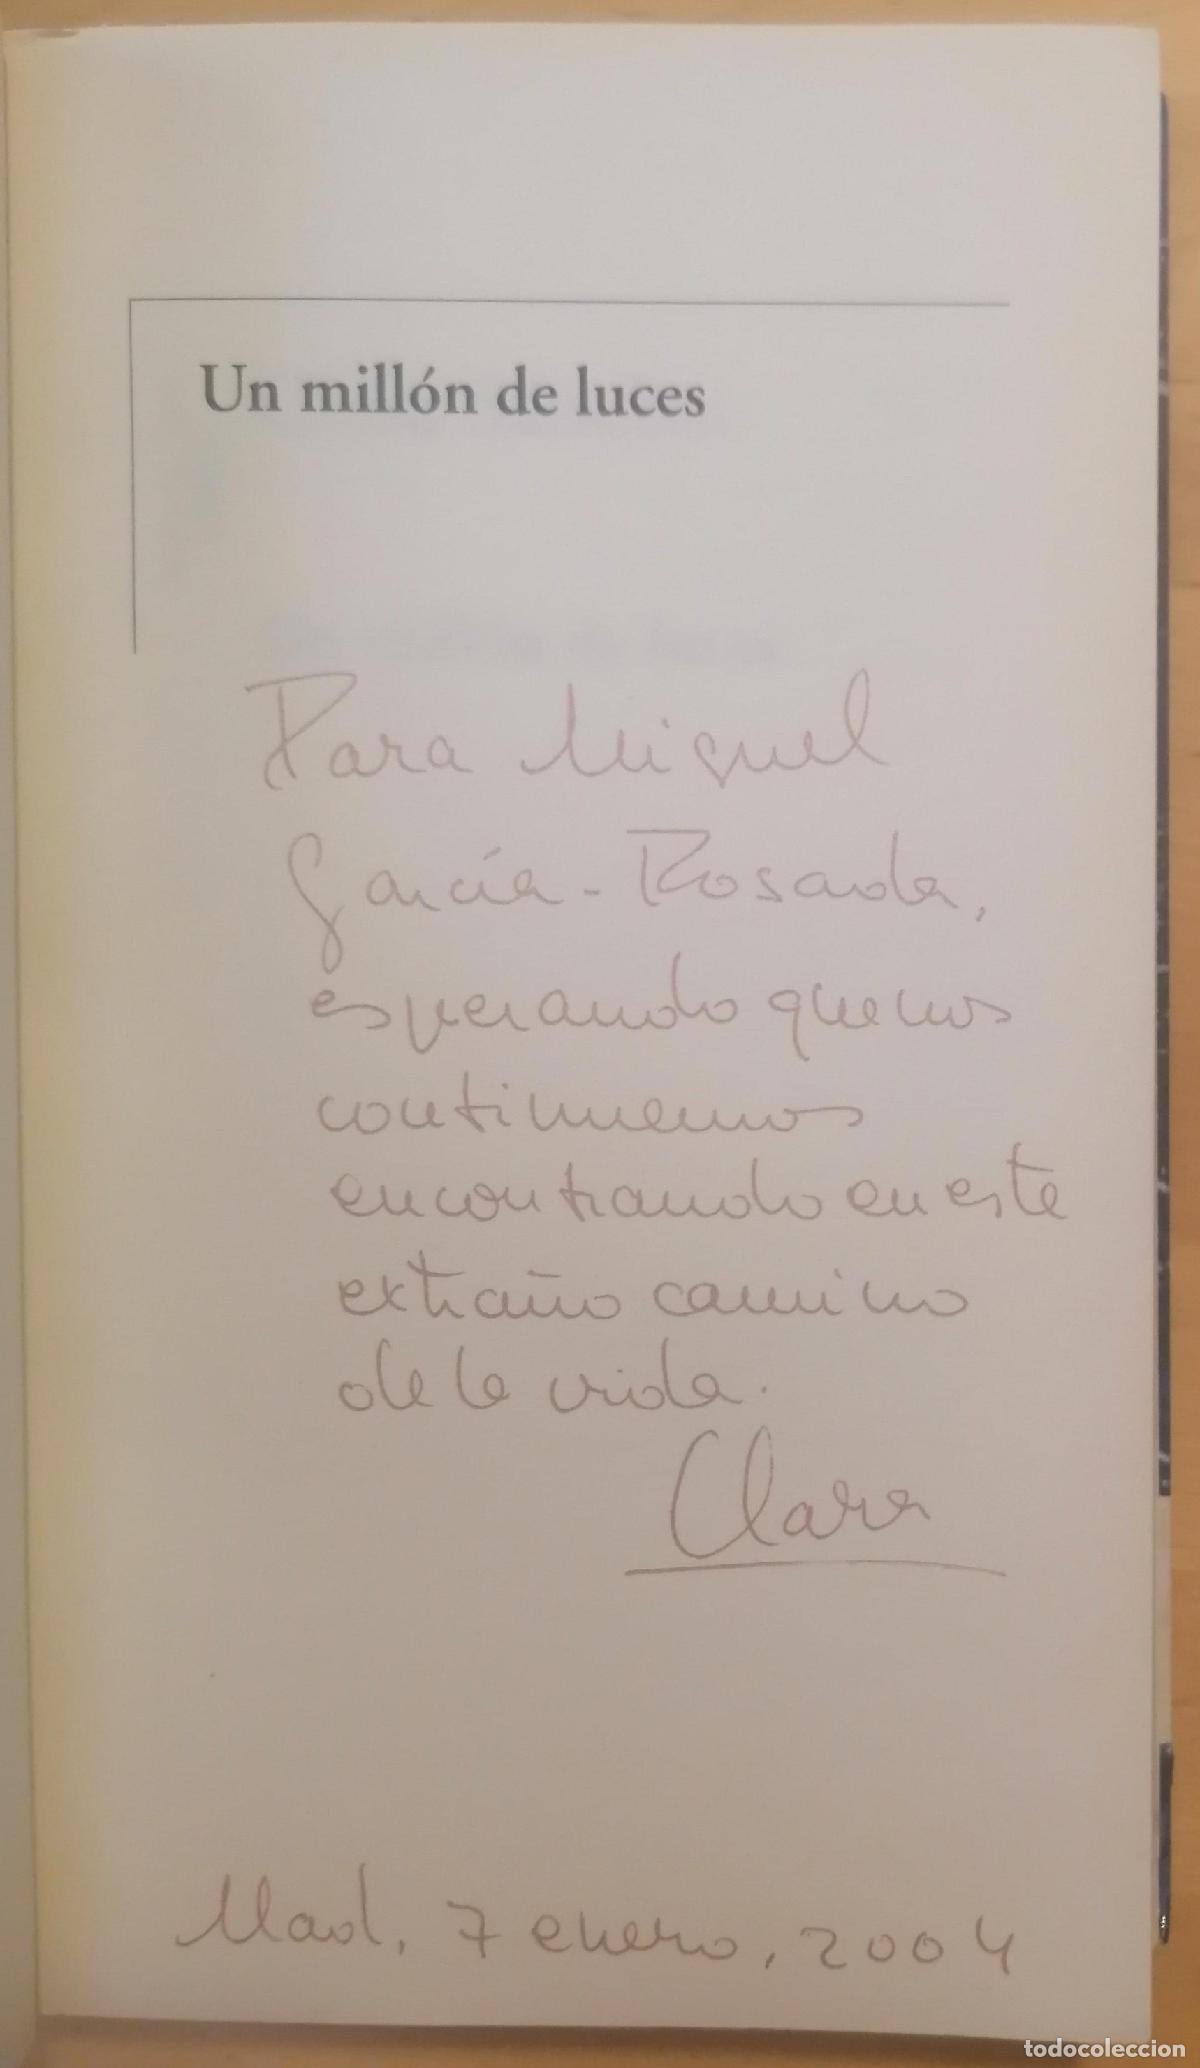 Un millón de luces
Para Miguel
García-Rosado,
esperando que nos
continuemos
encontrando en este
extraño camino
de la vida.
Clara
Mad, 7 enero, 2004
todocoleccion